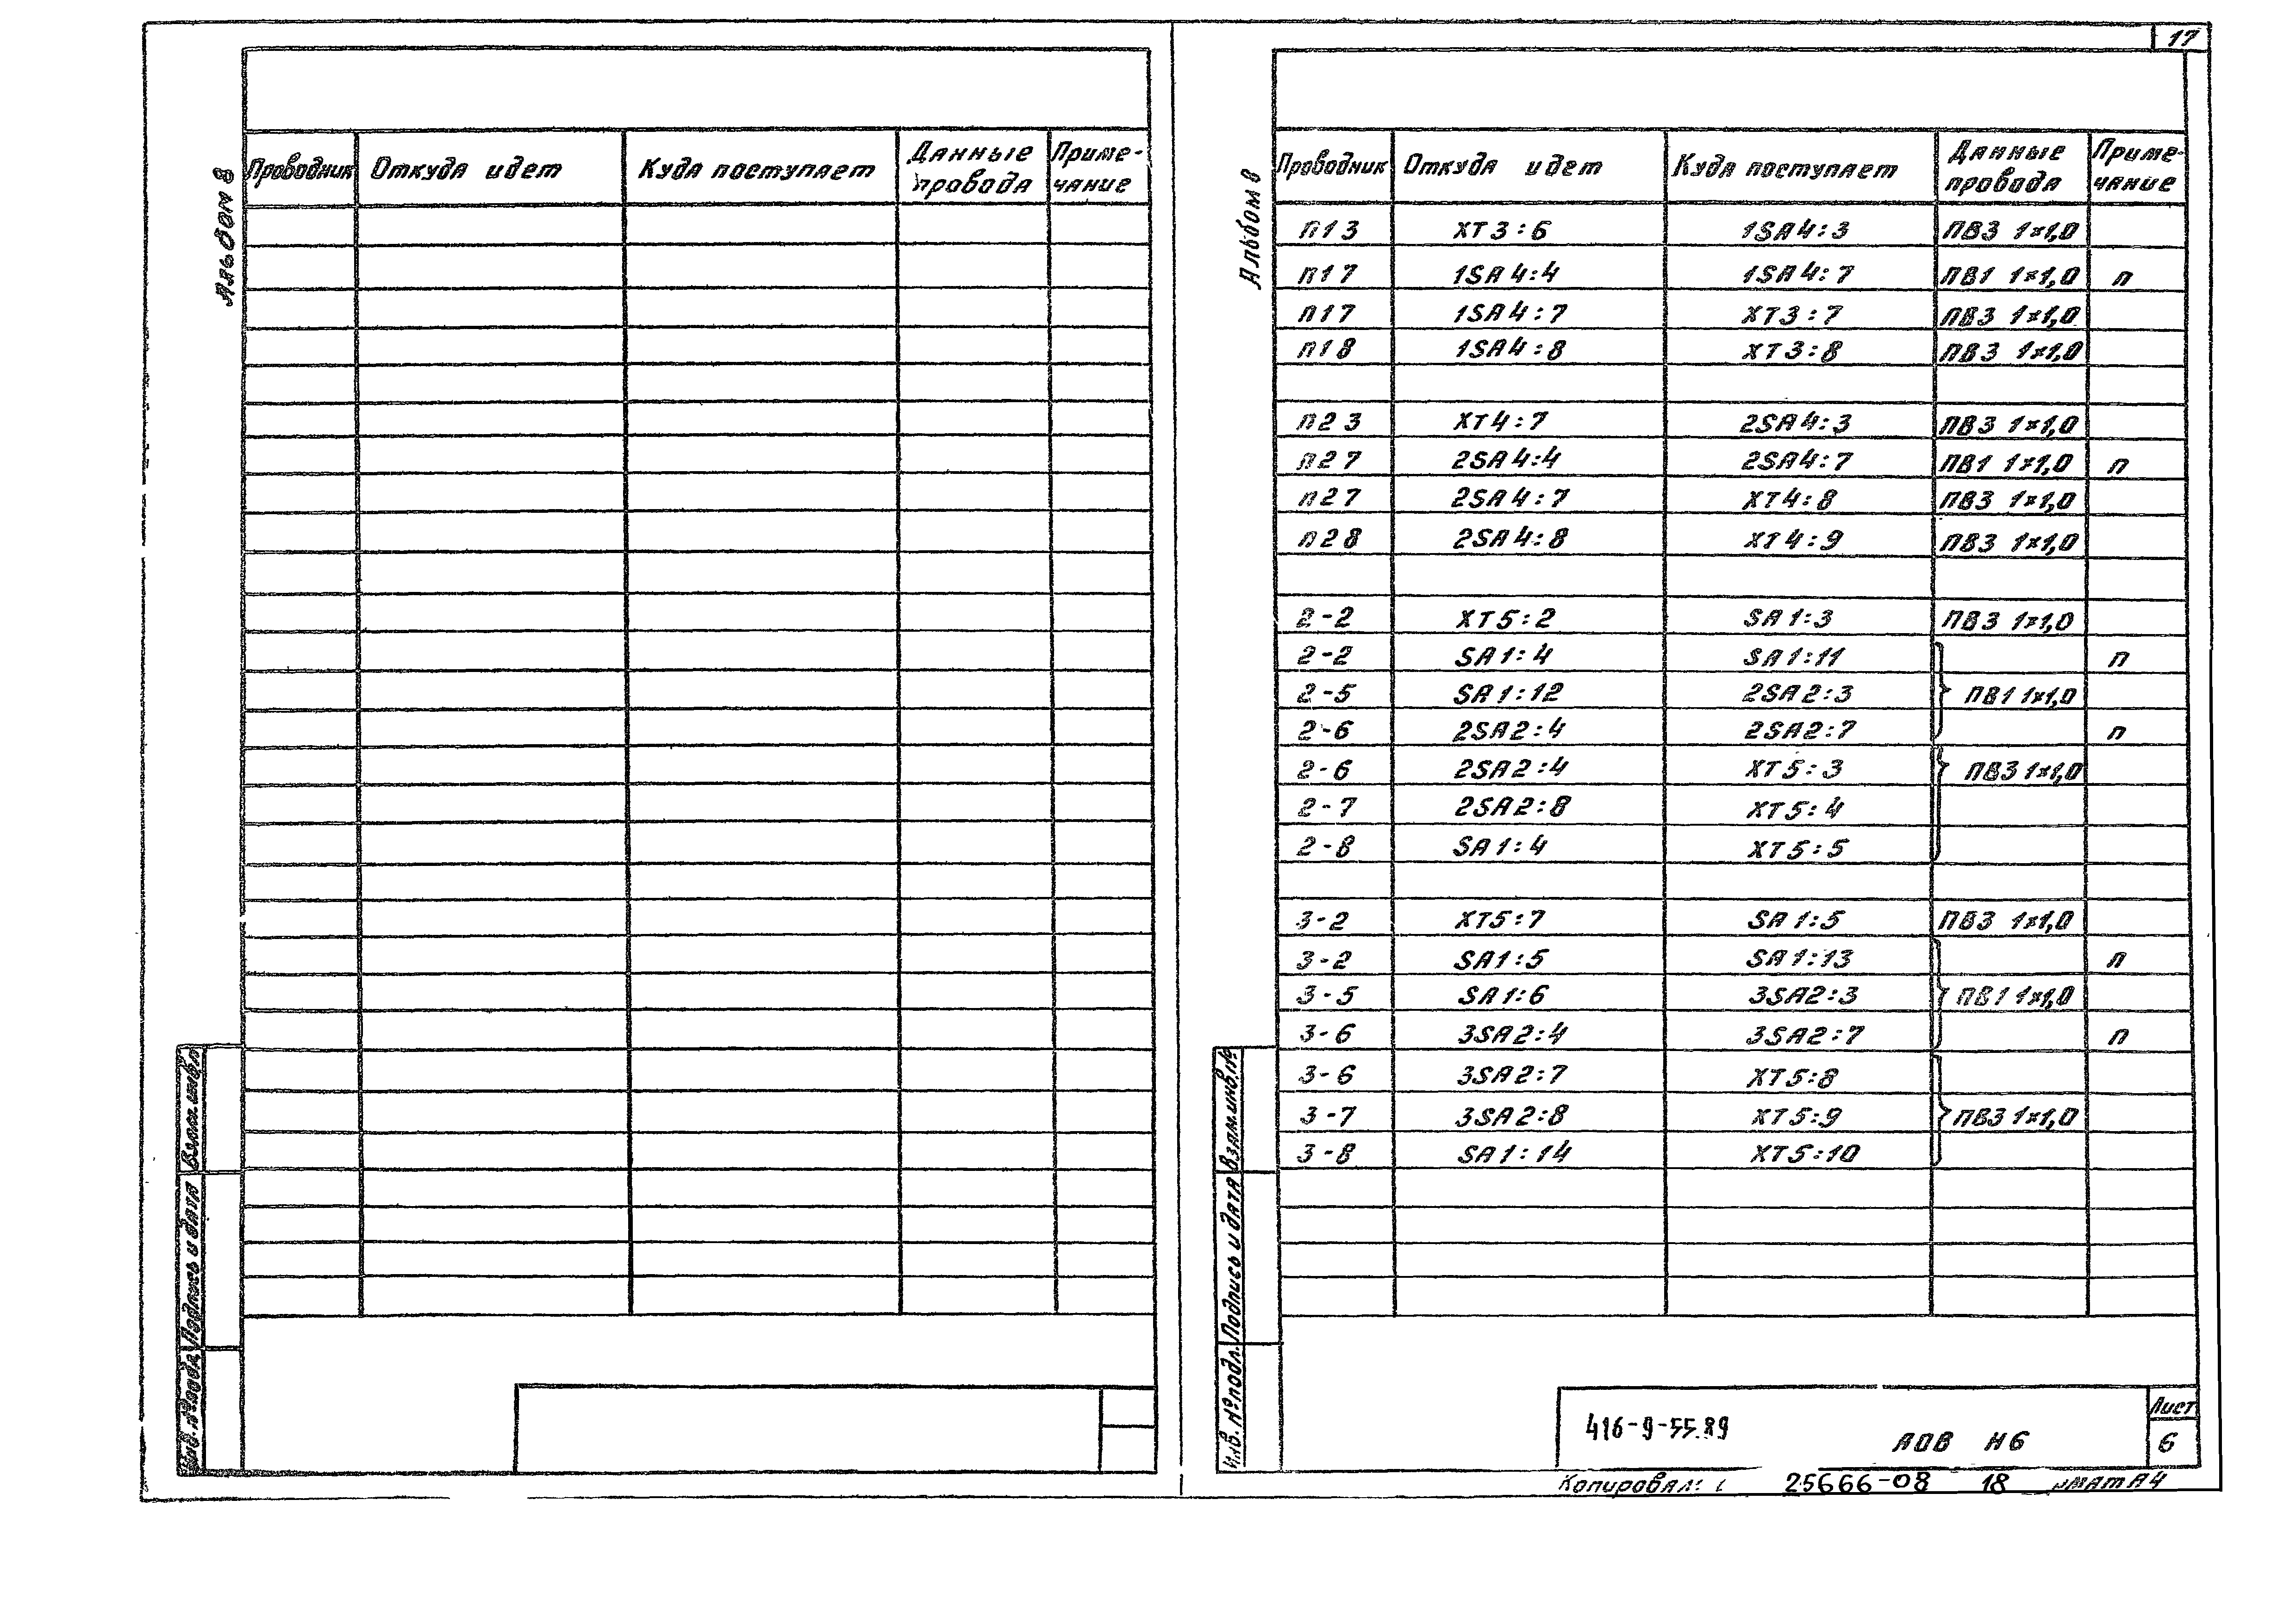 17
Альбом 8
Проводник Откуда идет Куда поступает Данные провода Приме-чание
Взам. инв.
Подпись и дата
Инв. № подл.
Альбом 8
Проводник Откуда идет Куда поступает Данные провода Приме-чание
П13 XT3:6 1SA4:3 ПВ3 1×1,0
П17 1SA4:4 1SA4:7 ПВ1 1×1,0 п
П17 1SA4:7 XT3:7 ПВ3 1×1,0
П18 1SA4:8 XT3:8 ПВ3 1×1,0
П23 XT4:7 2SA4:3 ПВ3 1×1,0
П27 2SA4:4 2SA4:7 ПВ1 1×1,0 п
П27 2SA4:7 XT4:8 ПВ3 1×1,0
П28 2SA4:8 XT4:9 ПВ3 1×1,0
2-2 XT5:2 SA1:3 ПВ3 1×1,0
2-2 SA1:4 SA1:11 п
2-5 SA1:12 2SA2:3 ПВ1 1×1,0
2-6 2SA2:4 2SA2:7 п
2-6 2SA2:4 XT5:3 ПВ3 1×1,0
2-7 2SA2:8 XT5:4
2-8 SA1:4 XT5:5
3-2 XT5:7 SA1:5 ПВ3 1×1,0
3-2 SA1:5 SA1:13 п
3-5 SA1:6 3SA2:3 ПВ1 1×1,0
3-6 3SA2:4 3SA2:7 п
3-6 3SA2:7 XT5:8
3-7 3SA2:8 XT5:9 ПВ3 1×1,0
3-8 SA1:14 XT5:10
Взам инв. №
Подпись и дата
Инв. № подл.
416-9-55.89 АОВ Н6
Лист
6
Копировал: 25666-08 18 мат А4